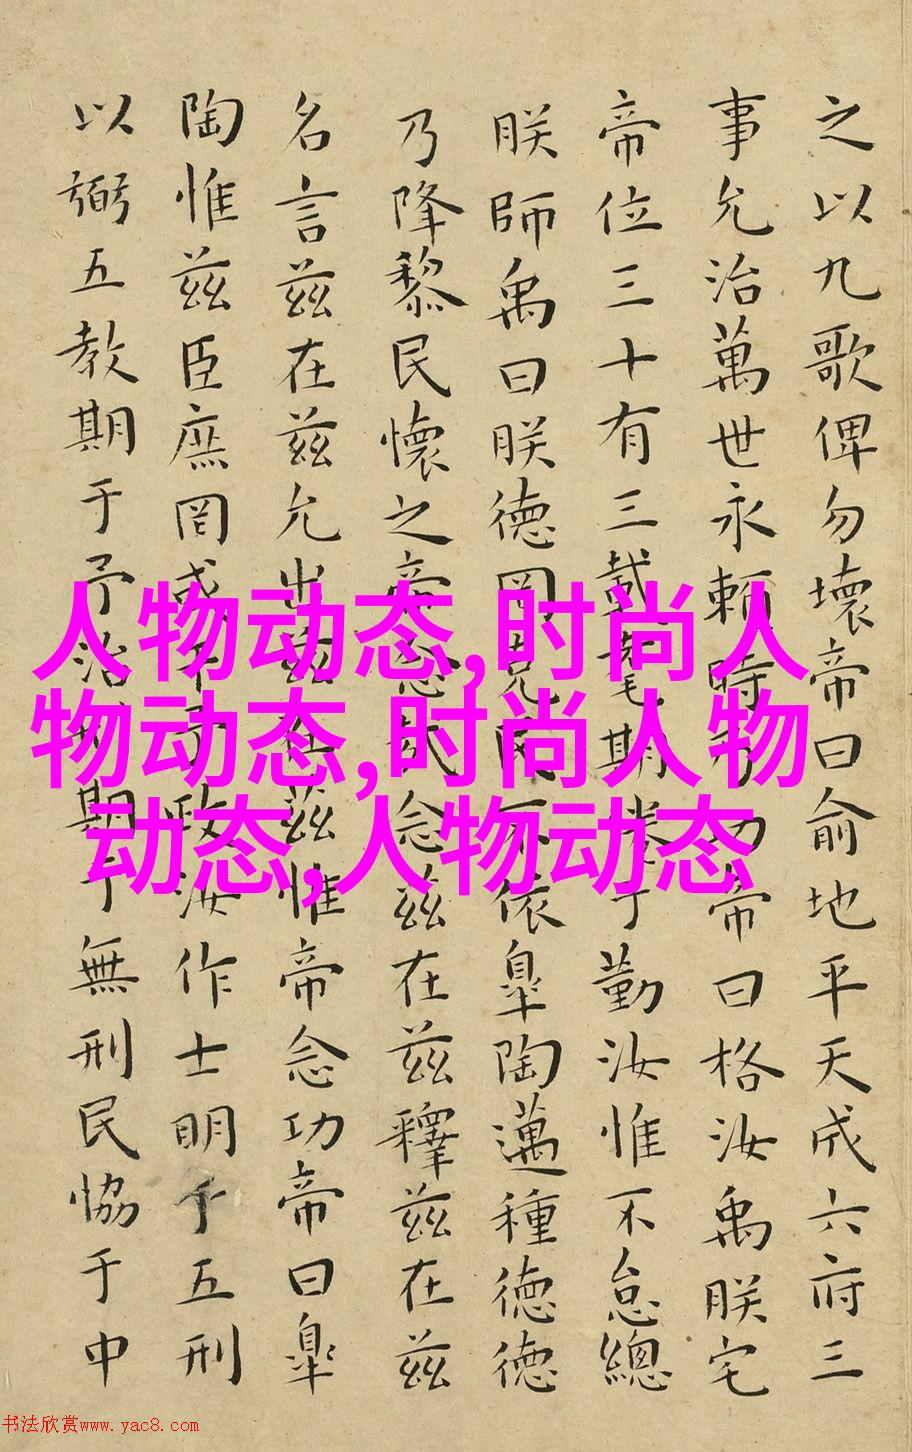 之以九歌俾勿壞帝曰俞地平天成六府三
事允治萬世永賴時乃功帝曰格汝禹朕宅
帝位三十有三載耄期倦于勤汝惟不怠總
朕師禹曰朕德罔克民不依皐陶邁種德德
乃降黎民懷之帝念哉念茲在茲釋茲在茲
名言茲在茲允出茲在茲惟帝念功帝曰皐
陶惟茲臣庶罔或干予政汝作士明于五刑
以弼五教期于予治刑期于無刑民恊于中
人物动态,时尚人
物动态,时尚人物
动态,人物动态
书法欣赏www.yac8.com